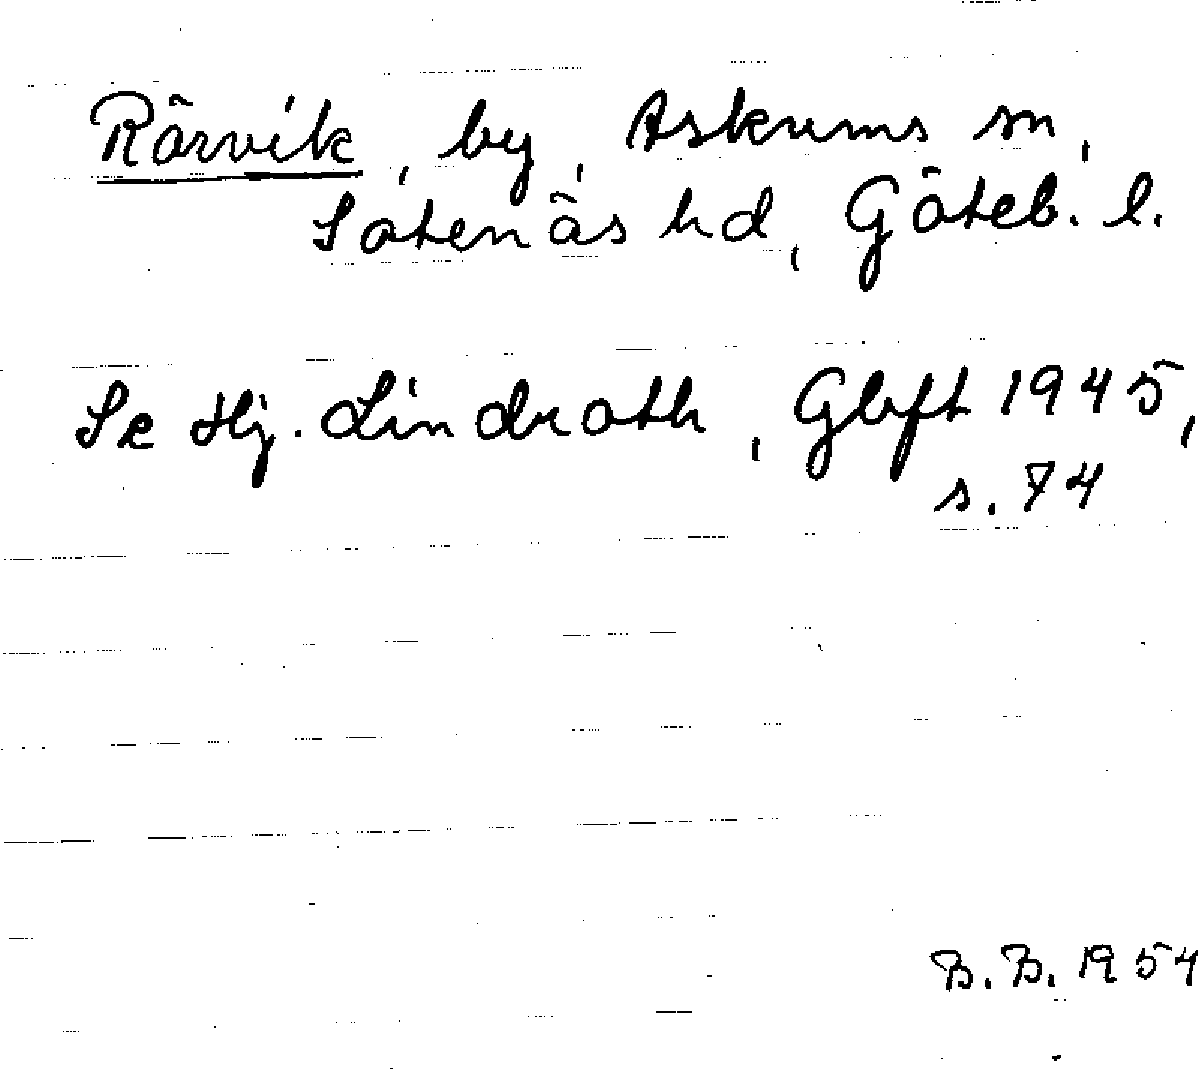 Rörvik, by, Askums sn,
Sotenäs hd, Göteb. l.
Se Hj. Lindroth, Gbft 1945,
s. 74
B.B. 1954